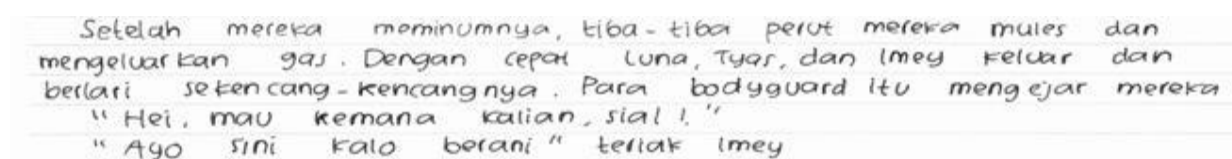 Setelah mereka meminumnya, tiba-tiba perut mereka mules dan
mengeluarkan gas. Dengan cepat Luna, Tyas, dan Imey keluar dan
berlari sekencang-kencangnya. Para bodyguard itu mengejar mereka
"Hei, mau kemana kalian, sial!."
"Ayo sini kalo berani" teriak Imey